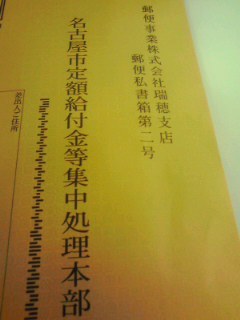 郵便事業株式会社瑞穂支店
郵便私書箱第二号
名古屋市定額給付金等集中処理本部
差出人ご住所